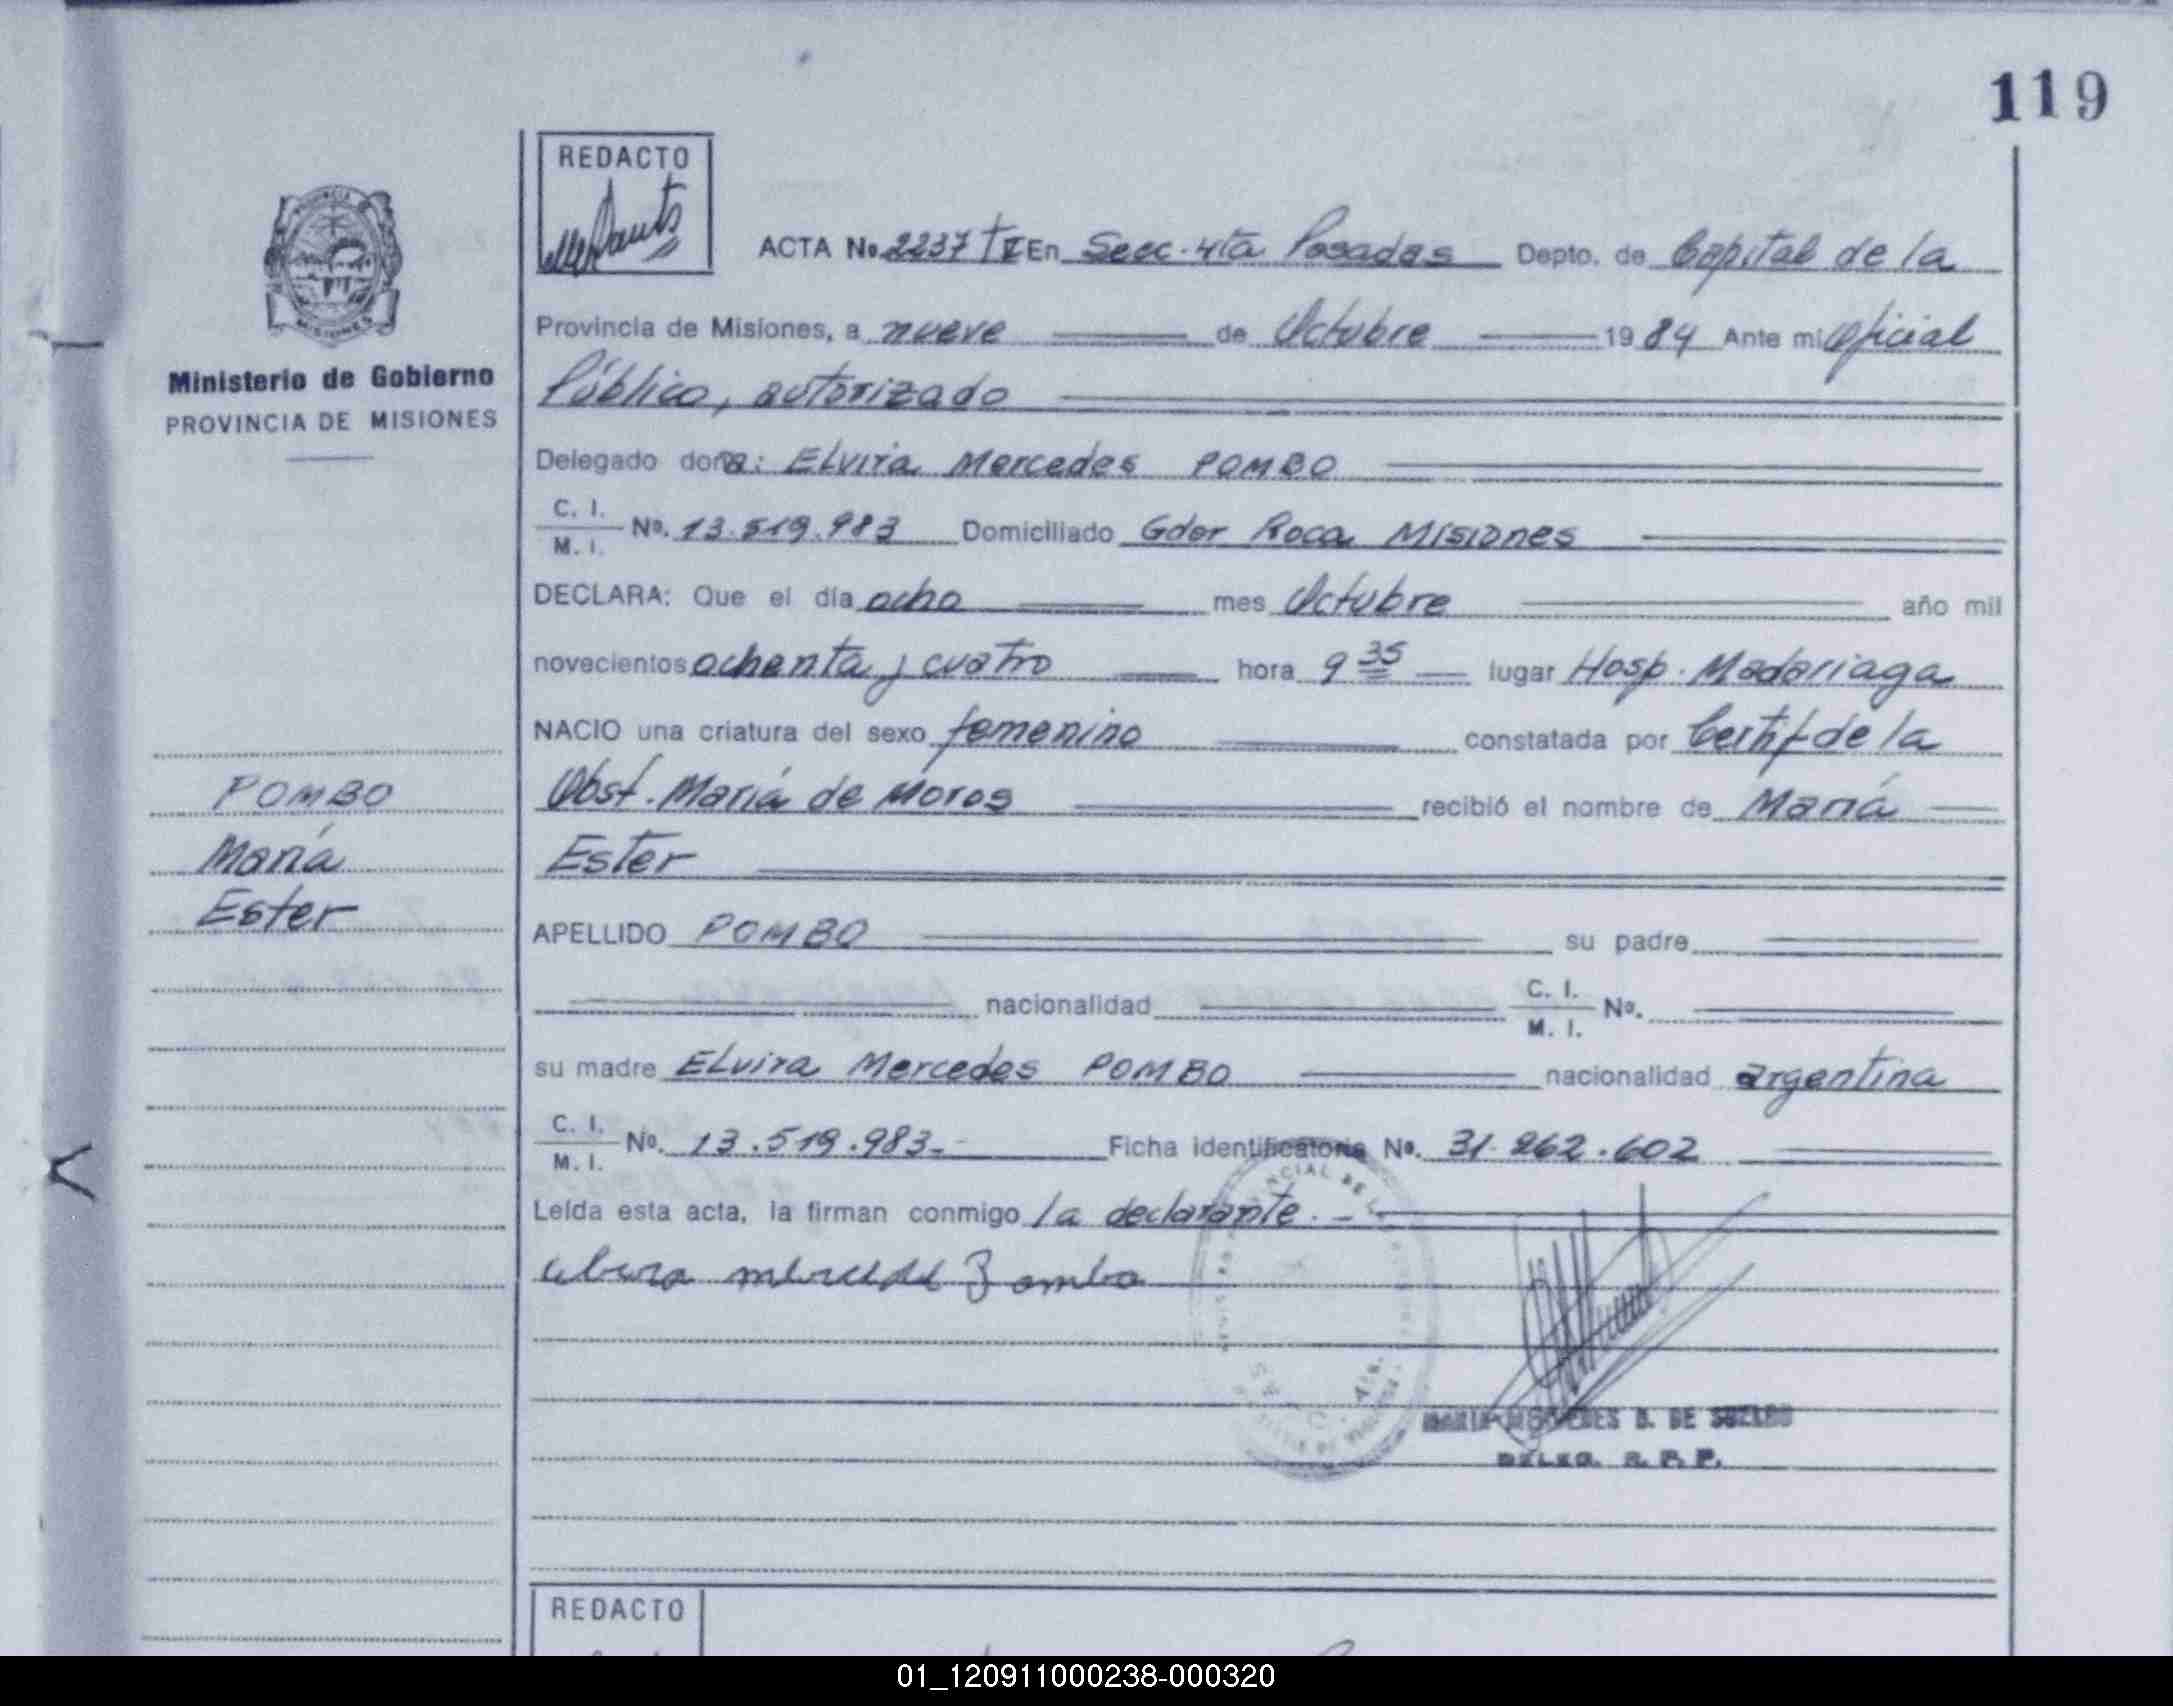 119
REDACTO
ACTA No 2237 TI En Secc. 4ta Posadas Depto. de Capital de la
Provincia de Misiones, a nueve de Octubre 1984 Ante mi Oficial
Público, autorizado
Delegado doña: Elvira Mercedes POMBO
C. I.
M. I. No. 13.519.983 Domiciliado Gdor Roca Misiones
DECLARA: Que el día ocho mes Octubre año mil
novecientos ochenta y cuatro hora 9 35 lugar Hosp. Madariaga
NACIO una criatura del sexo femenino constatada por Certif de la
Obst. María de Moros recibió el nombre de María
Ester
APELLIDO POMBO su padre
nacionalidad C. I.
M. I. No.
su madre Elvira Mercedes POMBO nacionalidad argentina
C. I.
M. I. No. 13.519.983.- Ficha identificatoria No. 31.262.602
Leída esta acta, la firman conmigo la declarante.-
MISIONES
Ministerio de Gobierno
PROVINCIA DE MISIONES
POMBO
María
Ester
DE
DELEG. R. P. P.
REDACTO
01_120911000238-000320